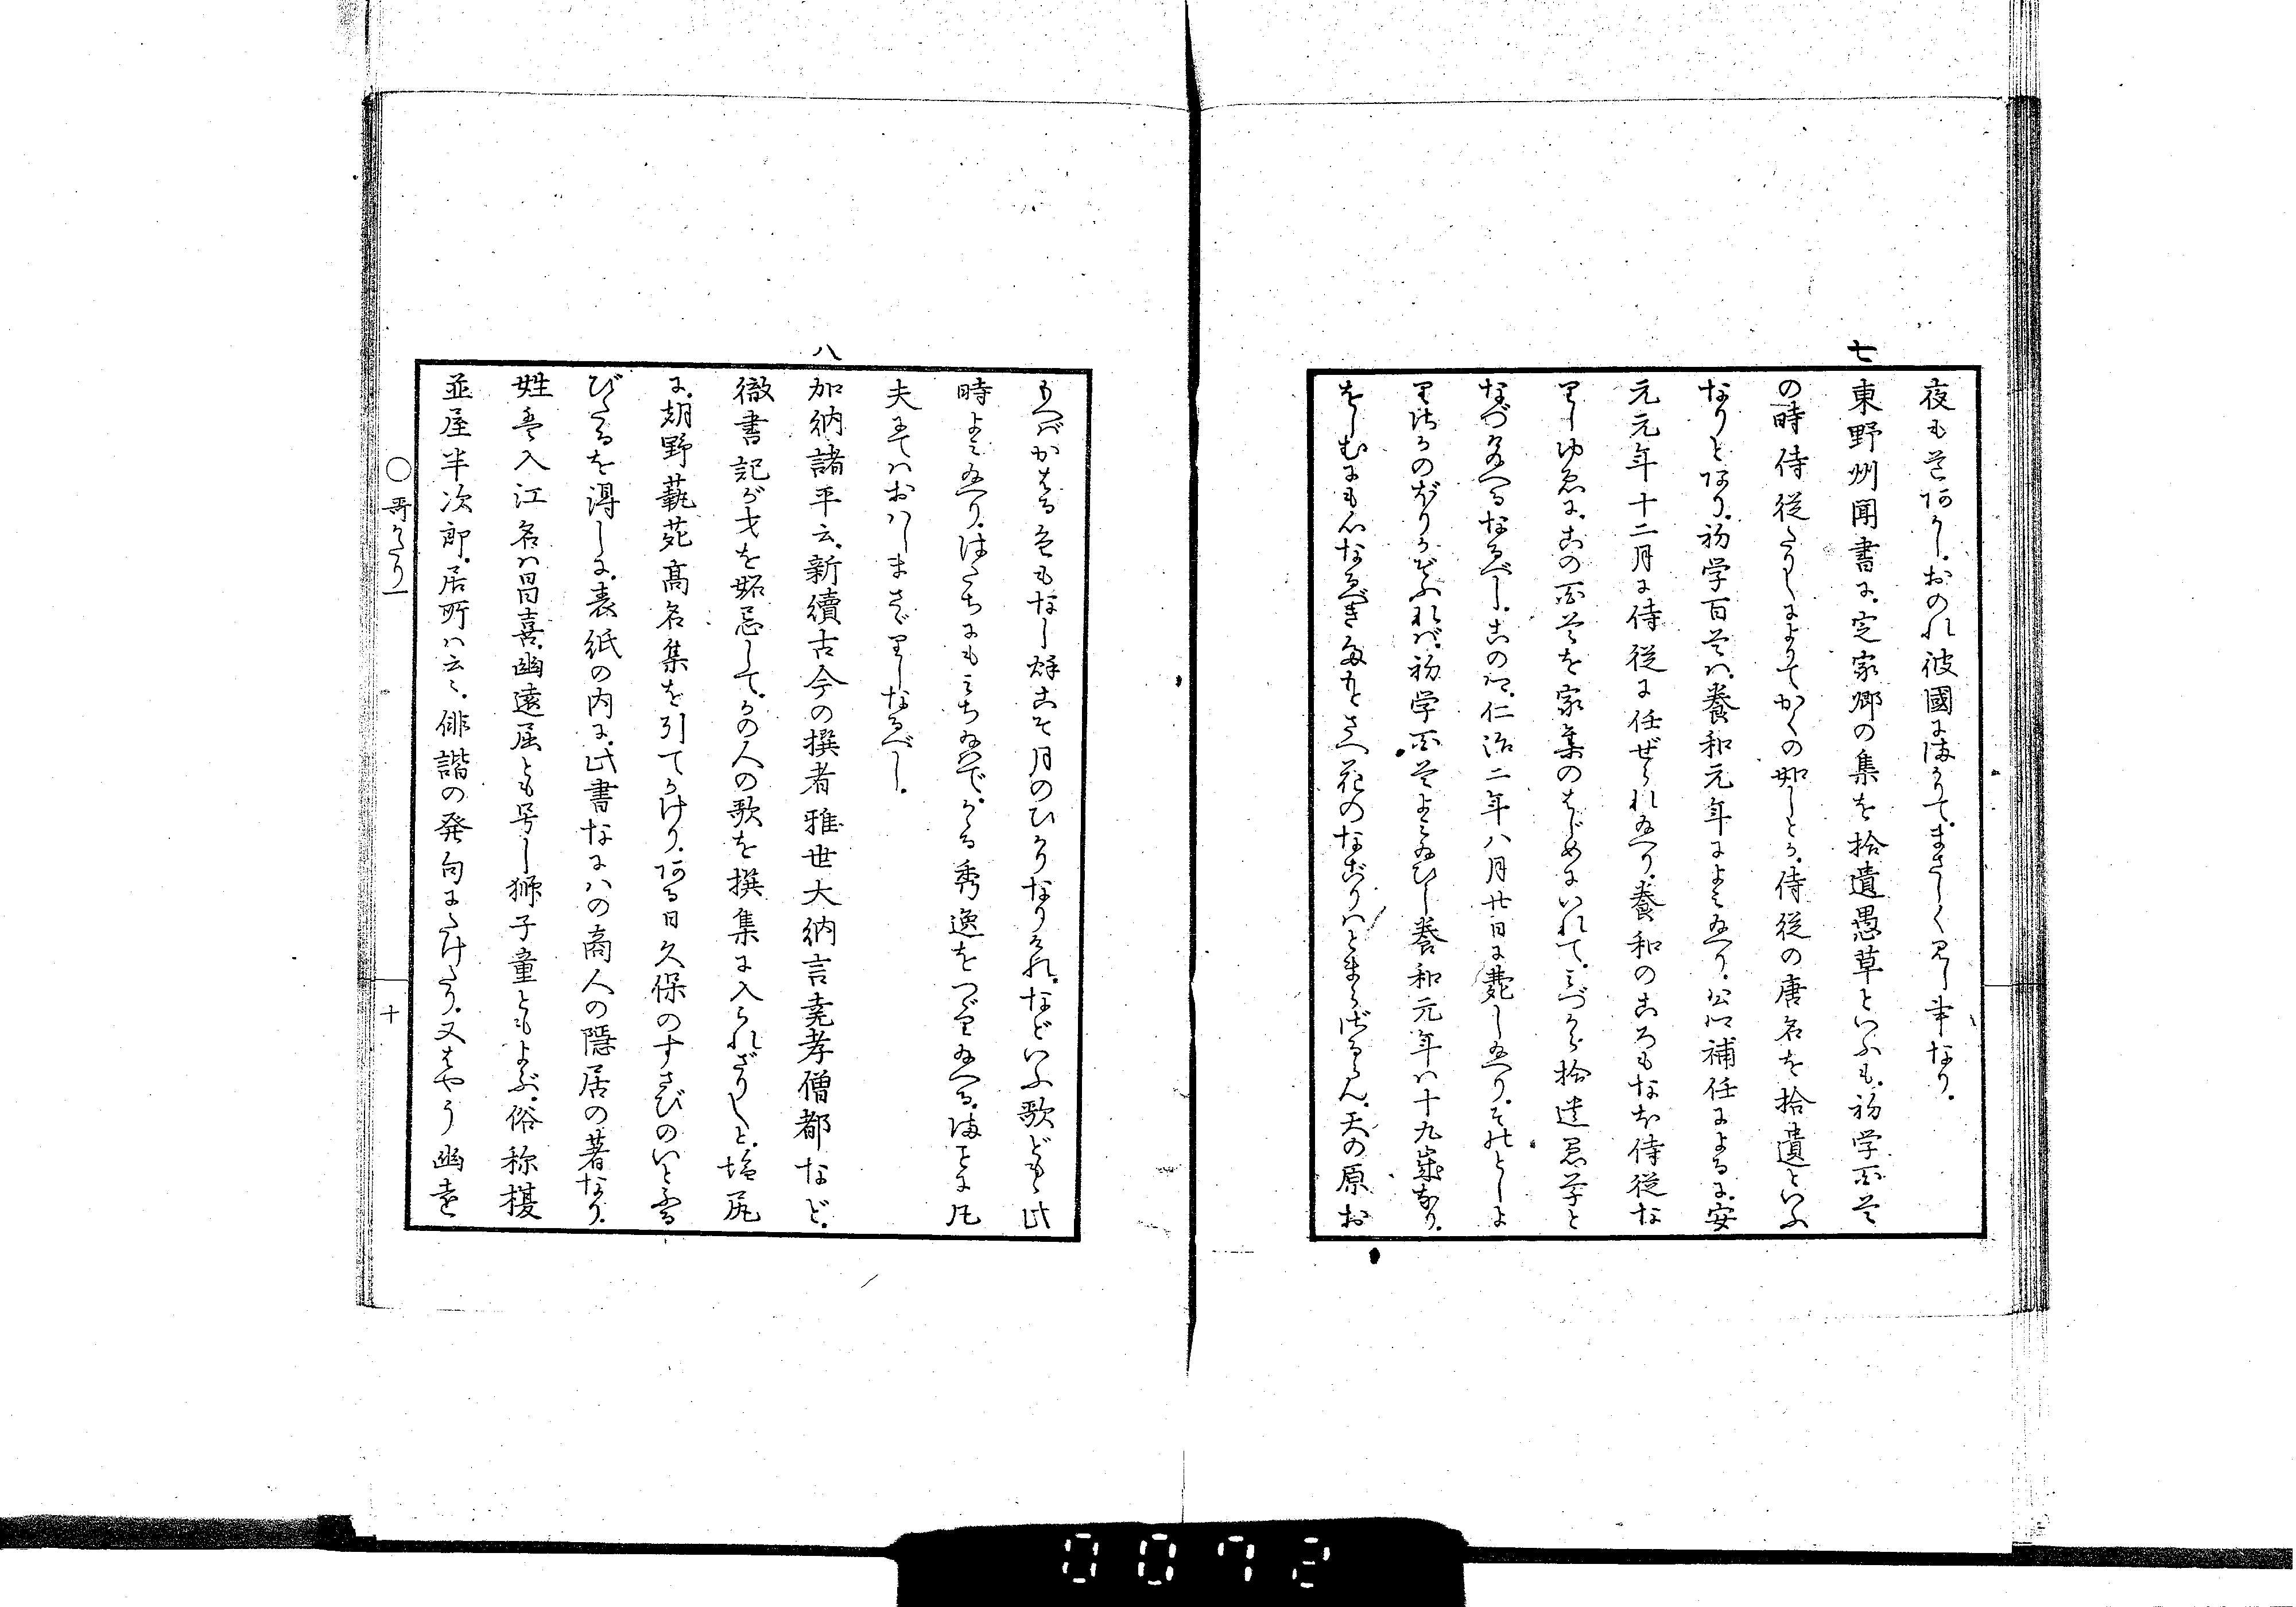 夜も是あかし。おのれ彼國にまかりて。まさしく見し事なり。
七
東野州聞書に。定家卿の集を拾遺愚草といふも。初学百首
の時侍従たりしによりてかくの如しとか。侍従の唐名を拾遺といふ
なりとあり。初学百首は。養和元年によみ玉へり。公卿補任によるに。安
元元年十二月に侍従に任ぜられ玉へり。養和のころもなほ侍従な
りしゆゑに。この百首を家集のはじめにいれて。みづから拾遺愚草と
なづけ玉へるなるべし。この卿。仁治二年八月廿日に薨し玉へり。そのとしよ
りさかのぼりかぞふれば。初学百首よみ玉ひし養和元年は十九歳なり。
をしむにも心なるべき
さへ花のなごりはとまらざるらん。天の原お
もへばかはる色もなし秋こそ月のひかりなりけれ。などいふ歌ども。此
時よみ玉へり。はたちにもみち玉はで。かゝる秀逸をつゞり玉へる。まことに凡
夫にてはおはしまさゞりしなるべし。
八
加納諸平云。新續古今の撰者雅世大納言堯孝僧都など。
徹書記が才を妬忌して。かの人の歌を撰集に入られざりしと。塩尻
に。朝野藝苑高名集を引てかけり。ある日久保のすさびのいとふる
びたるを得しに。表紙の内に。此書なにはの商人の隠居の著なり。
姓は入江名は昌喜。幽遠屈とも号し獅子童ともよぶ。俗称榎
並屋半次郎。居所は云々。俳諧の発句にたけたり。又はやう幽遠
○哥かたり一
十
0072